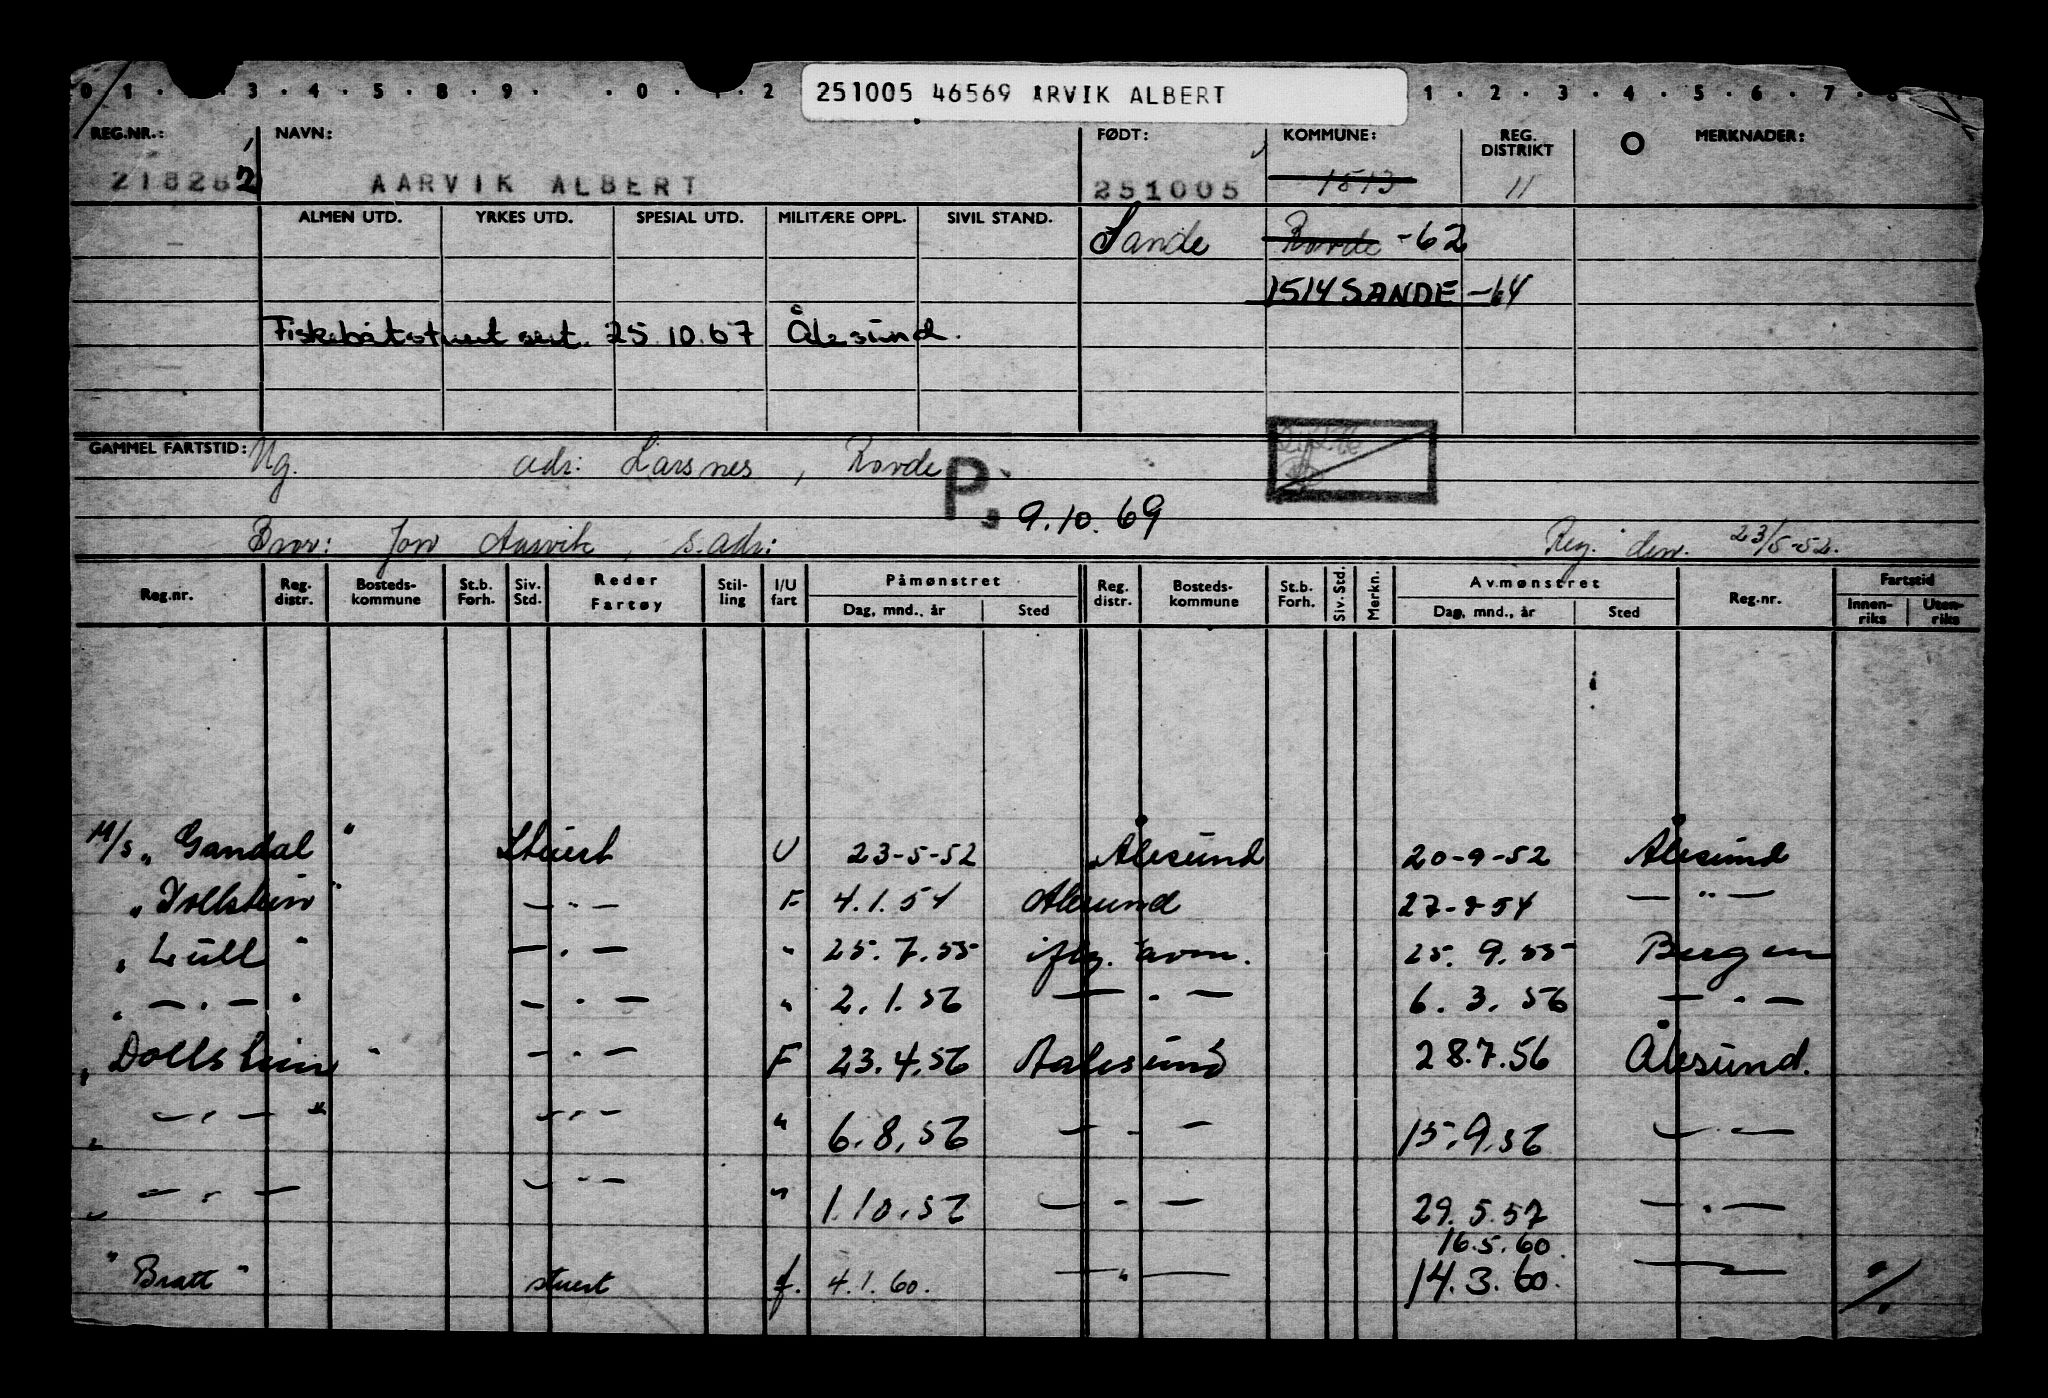 0 1 . . 3 . 4 . 5 . 8 . 9 . . 0 . 1 . 2 251005 46569 ARVIK ALBERT 1 . 2 . 3 . 4 . 5 . 6 . 7 . 8
REG.NR.: NAVN: FØDT: KOMMUNE: REG. DISTRIKT MERKNADER:
218282 AARVIK ALBERT 251005 1513 11
ALMEN UTD. YRKES UTD. SPESIAL UTD. MILITÆRE OPPL. SIVIL STAND. Sande Rovde -62
1514 SANDE -64
Fiskebåtstuert sert. 25.10.67 Ålesund.
GAMMEL FARTSTID: Ug. adr: Larsnes, Rovde
P. 9.10.69
Bror: Jon Aarvik, s. adr: Reg. den. 23/5-52.
Reg.nr. Reg. distr. Bosteds- kommune St.b. Forh. Siv. Std. Reder Fartøy Stil- ling I/U fart Påmønstret Dag, mnd., år Sted Reg. distr. Bosteds- kommune St.b. Forh. Siv. Std. Merkn. Avmønstret Dag, mnd., år Sted Reg.nr. Fartstid Innen- riks Uten- riks
M/s "Gandal" Stuert U 23-5-52 Ålesund 20-9-52 Ålesund
"Dollstein" — " — F 4.1.54 Alesund 27-8-54 — " —
" Lull " — " — " 25.7.55 iflg. avm. 25.9.55 Bergen
" — " — " — " — " 2.1.56 — " — 6.3.56 — " —
" Dollstein " — " — F 23.4.56 Aalesund 28.7.56 Ålesund.
" — " — " — " — " 6.8.56 — " — 15.9.56 — " —
" — " — — " — " 1.10.56 — " — 29.5.57 — " —
16.5.60.
" Bratt " stuert f. 4.1.60. — " — 14.3.60. — " — %